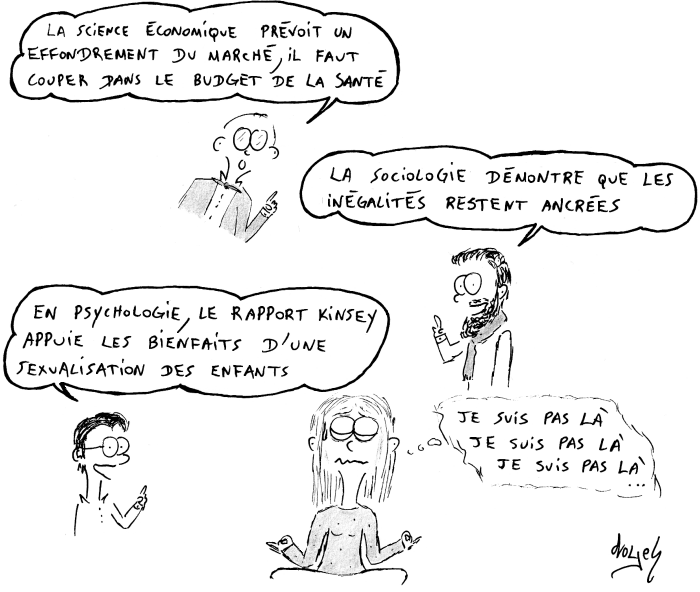 LA SCIENCE ÉCONOMIQUE PRÉVOIT UN
EFFONDREMENT DU MARCHÉ, IL FAUT
COUPER DANS LE BUDGET DE LA SANTÉ
LA SOCIOLOGIE DÉMONTRE QUE LES
INÉGALITÉS RESTENT ANCRÉES
EN PSYCHOLOGIE, LE RAPPORT KINSEY
APPUIE LES BIENFAITS D'UNE
SEXUALISATION DES ENFANTS
JE SUIS PAS LÀ
JE SUIS PAS LÀ
JE SUIS PAS LÀ
...